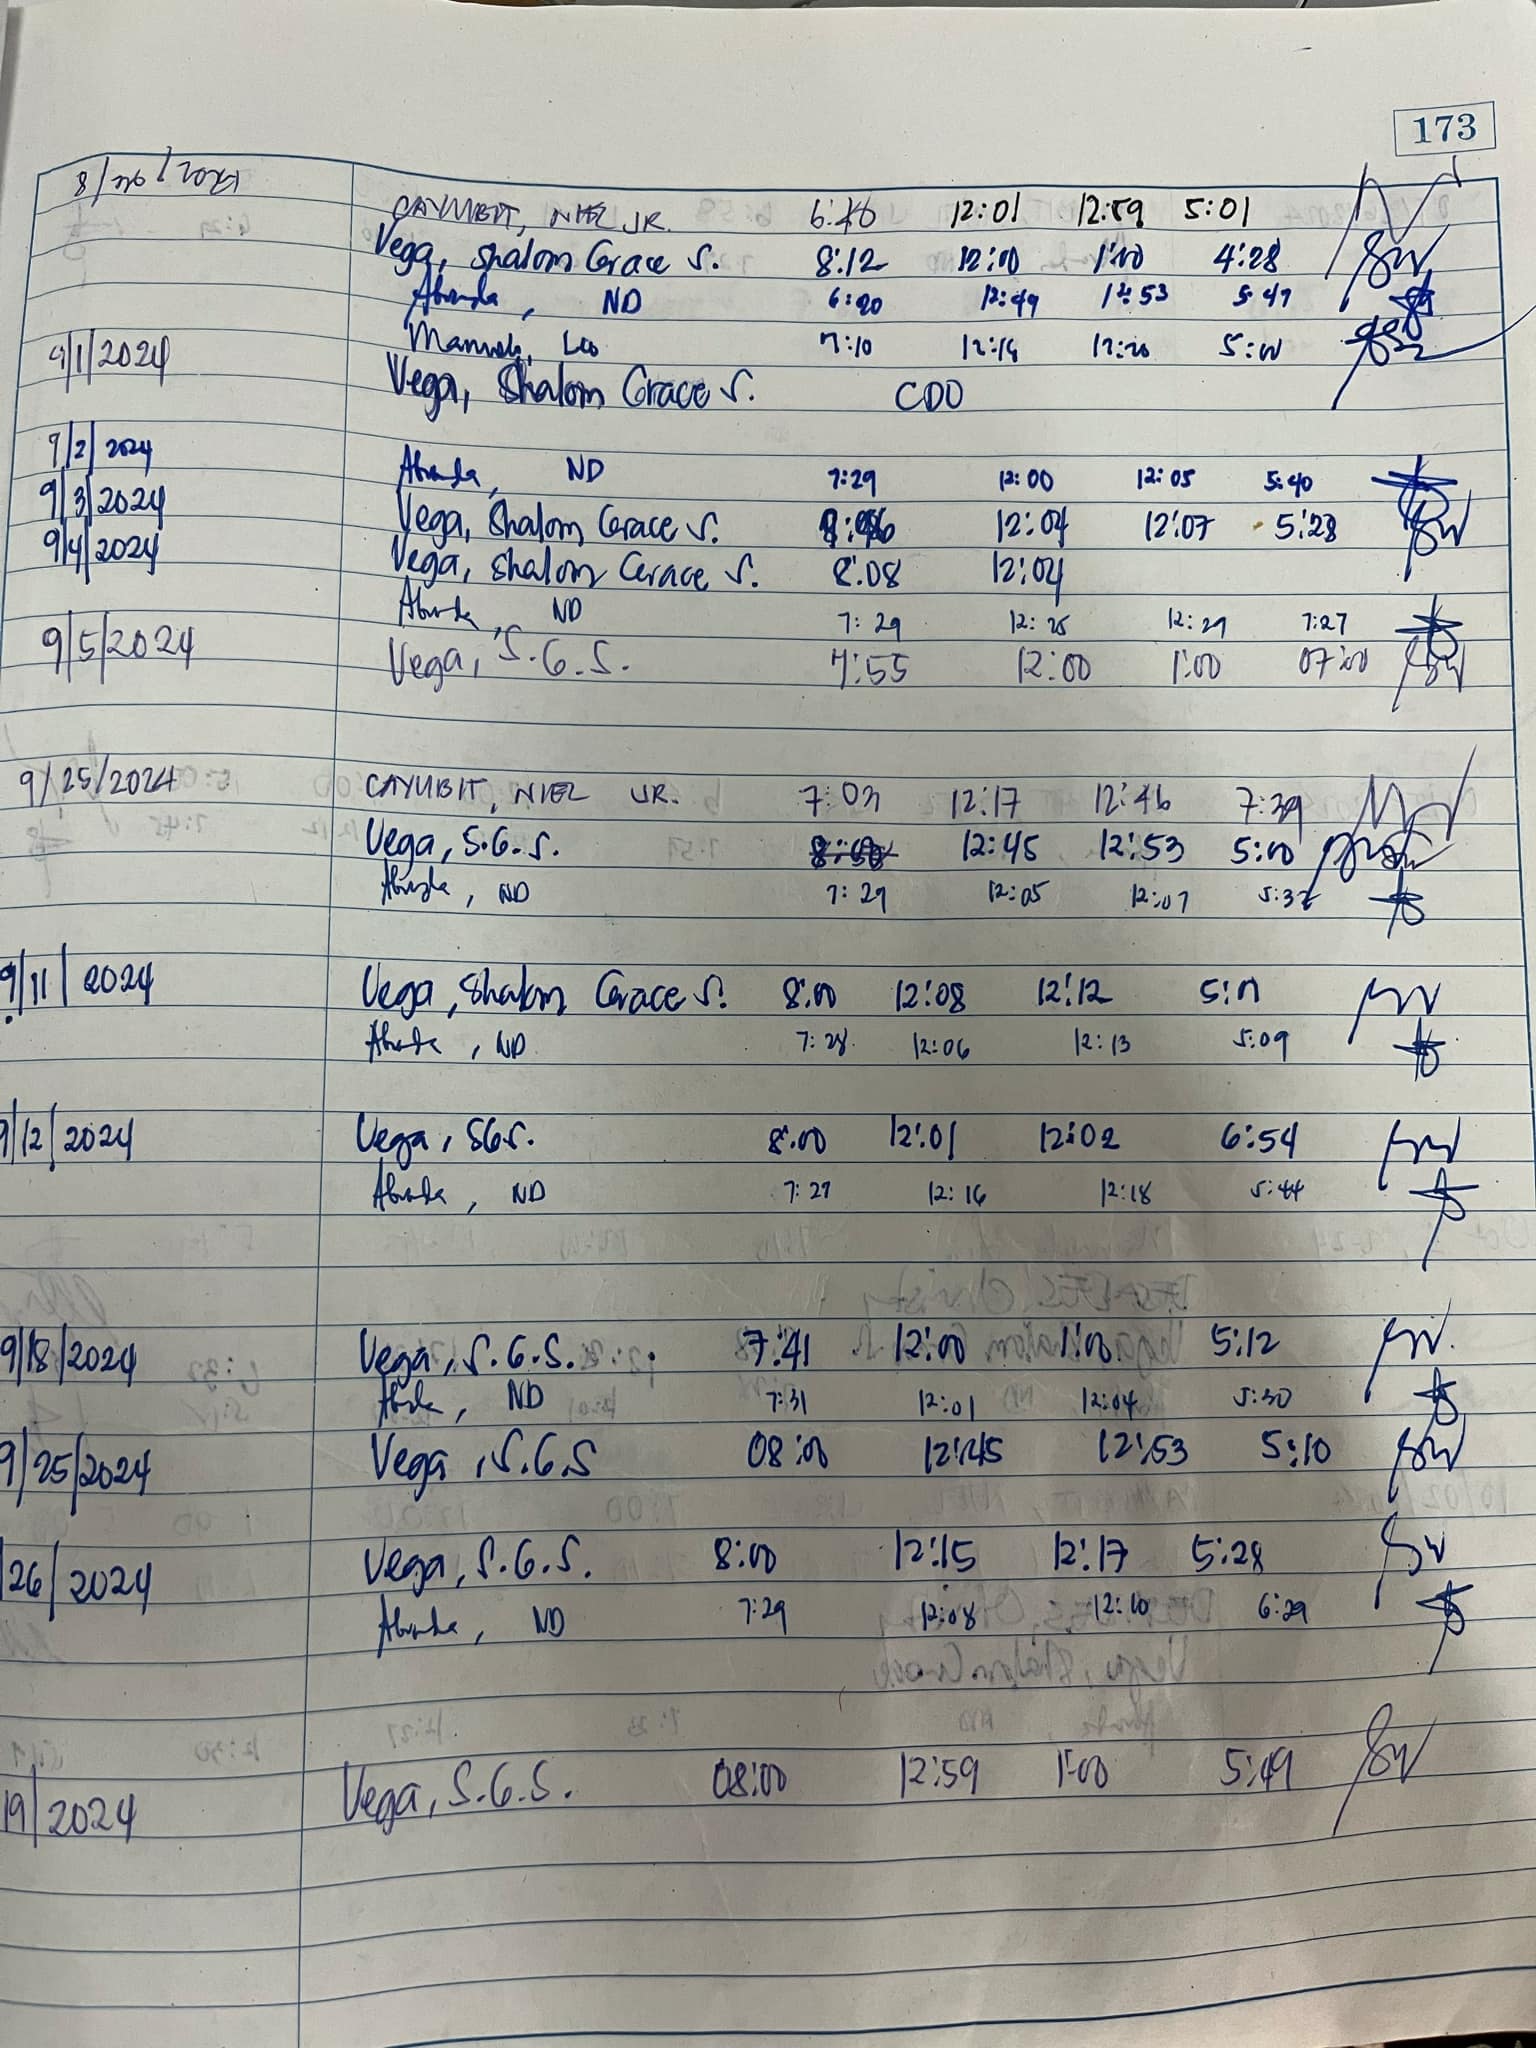 173
8/ /2024
CAYUBIT, NIEL JR. 6:46 12:01 12:59 5:01
Vega, Shalom Grace S. 8:12 12:00 1:00 4:28
Abunda, ND 6:20 12:49 12:53 5:47
Manuel, Leo 7:10 12:14 12:20 5:00
9/1/2024 Vega, Shalom Grace S. CDO
9/2/2024 Abunda, ND 7:29 12:00 12:05 5:40
9/3/2024 Vega, Shalom Grace S. 12:04 12:07 5:28
9/4/2024 Vega, Shalom Grace S. 8:08 12:04
Abunda, ND 7:29 12:25 12:29 7:27
9/5/2024 Vega, S.G.S. 7:55 12:00 1:00 07:00
9/25/2024 CAYUBIT, NIEL JR. 7:03 12:17 12:46 7:39
Vega, S.G.S. 12:45 12:53 5:00
Abunda, ND 7:29 12:05 12:07 5:32
9/11/2024 Vega, Shalom Grace S. 8:00 12:08 12:12 5:11
Abunda, ND 7:28 12:06 12:13 5:09
9/12/2024 Vega, SGS. 8:00 12:01 12:02 6:54
Abunda, ND 7:27 12:16 12:18 5:44
9/18/2024 Vega, S.G.S. 7:41 12:00 1:00 5:12
Abunda, ND 7:31 12:01 12:04 5:30
9/25/2024 Vega, S.G.S 08:00 12:45 12:53 5:10
/26/2024 Vega, S.G.S. 8:00 12:15 12:17 5:28
Abunda, ND 7:29 12:08 12:10 6:29
19/2024 Vega, S.G.S. 08:00 12:59 1:00 5:49